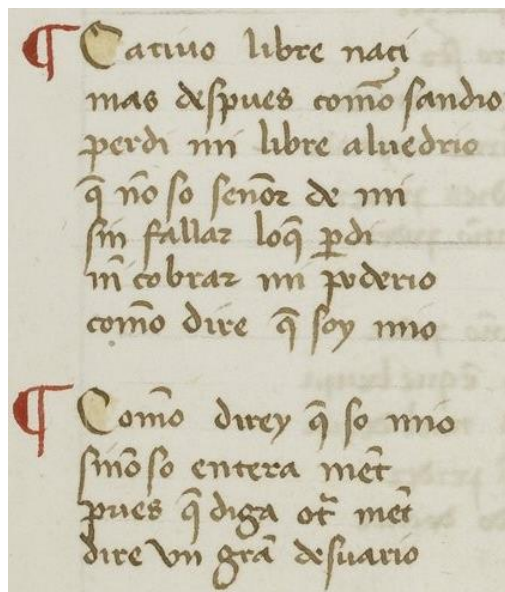 ¶ Catiuo libre naci
mas despues com̃o sandio
perdi mi libre aluedrio
q̃ ño so señor de mi
sin fallar loq̃ ꝑdi
nĩ cobrar mi poderio
com̃o dire q̃ soy mio
¶ Com̃o direy q̃ so mio
sinõ so entera mẽt
pues q̃ diga ot̃ mẽt
dire vn grã desuario